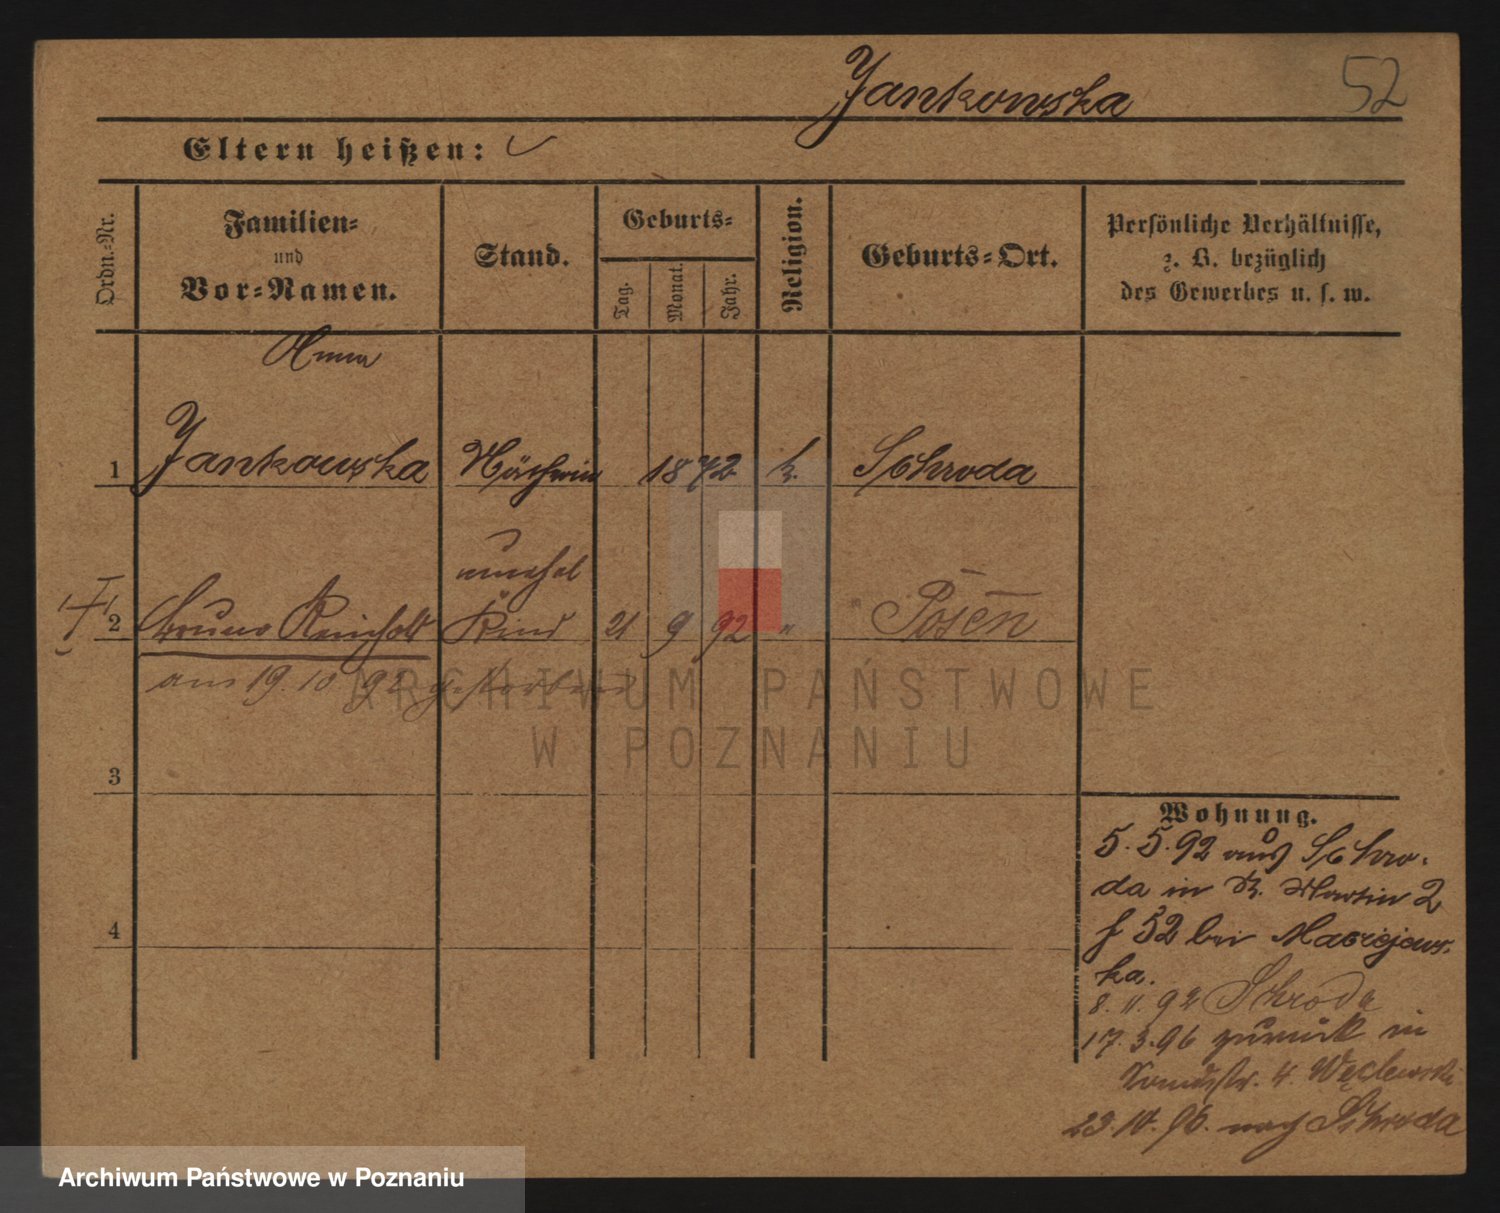 Jankowska
52
Eltern heißen:
Ordn.-Nr.
Familien-
und
Vor-Namen.
Stand.
Geburts-
Tag.
Monat.
Jahr.
Religion.
Geburts-Ort.
Persönliche Verhältnisse,
z. B. bezüglich
des Gewerbes u. s. w.
Anna
1 Jankowska Näherin 1872 k. Schroda
unehel
2 Bruno Reinhold Kind 21 9 92 " Posen
am 19. 10 92 gestorben
3
4
Wohnung.
5. 5. 92 aus Schro-
da in St. Martin 2
f 52 bei Maciejews-
ka.
8. 11. 92 Schroda
17. 3. 96 zurück in
4. Węclewski
23. 10. 96. nach Schroda
ARCHIWUM PAŃSTWOWE
W POZNANIU
Archiwum Państwowe w Poznaniu